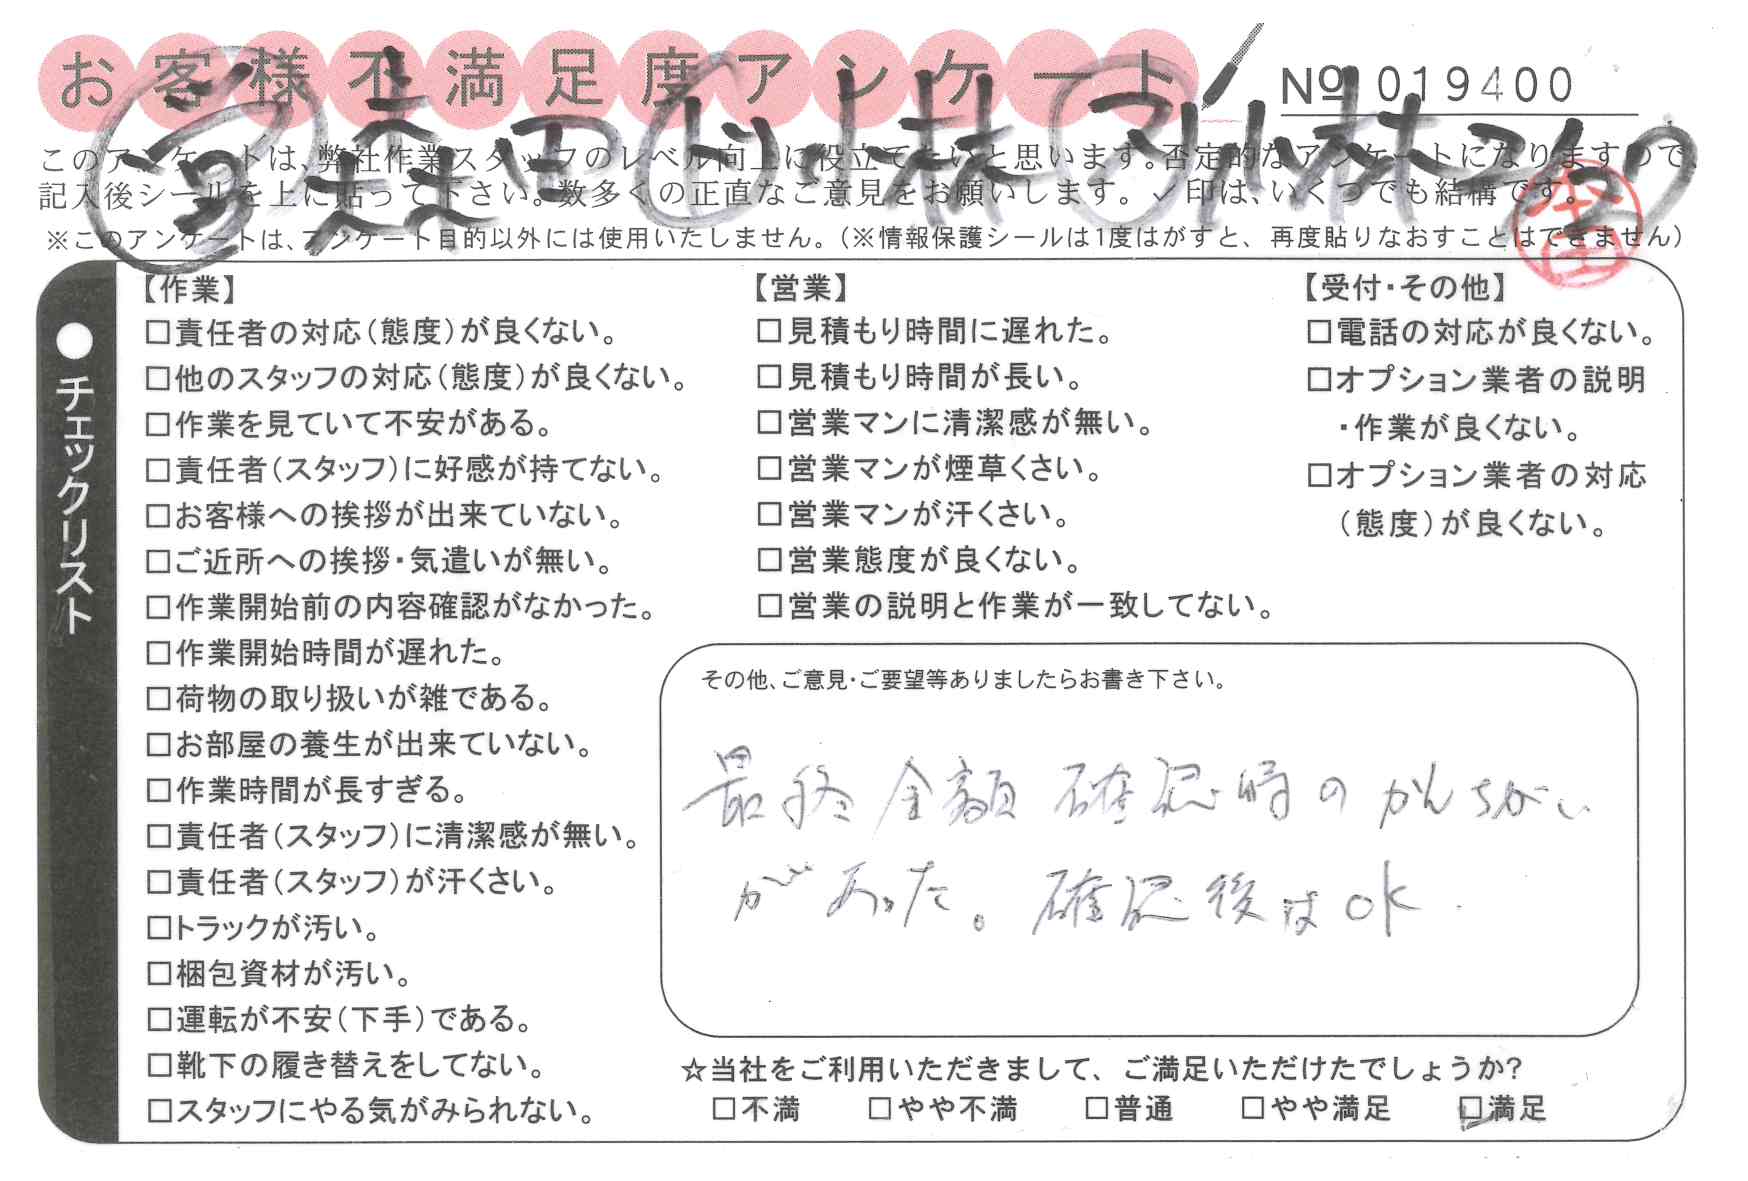 お客様不満足度アンケート
№ 019400
このアンケートは、弊社作業スタッフのレベル向上に役立てたいと思います。否定的なアンケートになりますので、
記入後シールを上に貼って下さい。数多くの正直なご意見をお願いします。✓印は、いくつでも結構です。
※このアンケートは、アンケート目的以外には使用いたしません。(※情報保護シールは1度はがすと、再度貼りなおすことはできません)
本田
●チェックリスト
【作業】
□責任者の対応(態度)が良くない。
□他のスタッフの対応(態度)が良くない。
□作業を見ていて不安がある。
□責任者(スタッフ)に好感が持てない。
□お客様への挨拶が出来ていない。
□ご近所への挨拶・気遣いが無い。
□作業開始前の内容確認がなかった。
□作業開始時間が遅れた。
□荷物の取り扱いが雑である。
□お部屋の養生が出来ていない。
□作業時間が長すぎる。
□責任者(スタッフ)に清潔感が無い。
□責任者(スタッフ)が汗くさい。
□トラックが汚い。
□梱包資材が汚い。
□運転が不安(下手)である。
□靴下の履き替えをしてない。
□スタッフにやる気がみられない。
【営業】
□見積もり時間に遅れた。
□見積もり時間が長い。
□営業マンに清潔感が無い。
□営業マンが煙草くさい。
□営業マンが汗くさい。
□営業態度が良くない。
□営業の説明と作業が一致してない。
【受付・その他】
□電話の対応が良くない。
□オプション業者の説明
・作業が良くない。
□オプション業者の対応
(態度)が良くない。
その他、ご意見・ご要望等ありましたらお書き下さい。
最終金額確認時のかんちがい
があった。確認後はOK.
☆当社をご利用いただきまして、ご満足いただけたでしょうか?
□不満 □やや不満 □普通 □やや満足 □満足